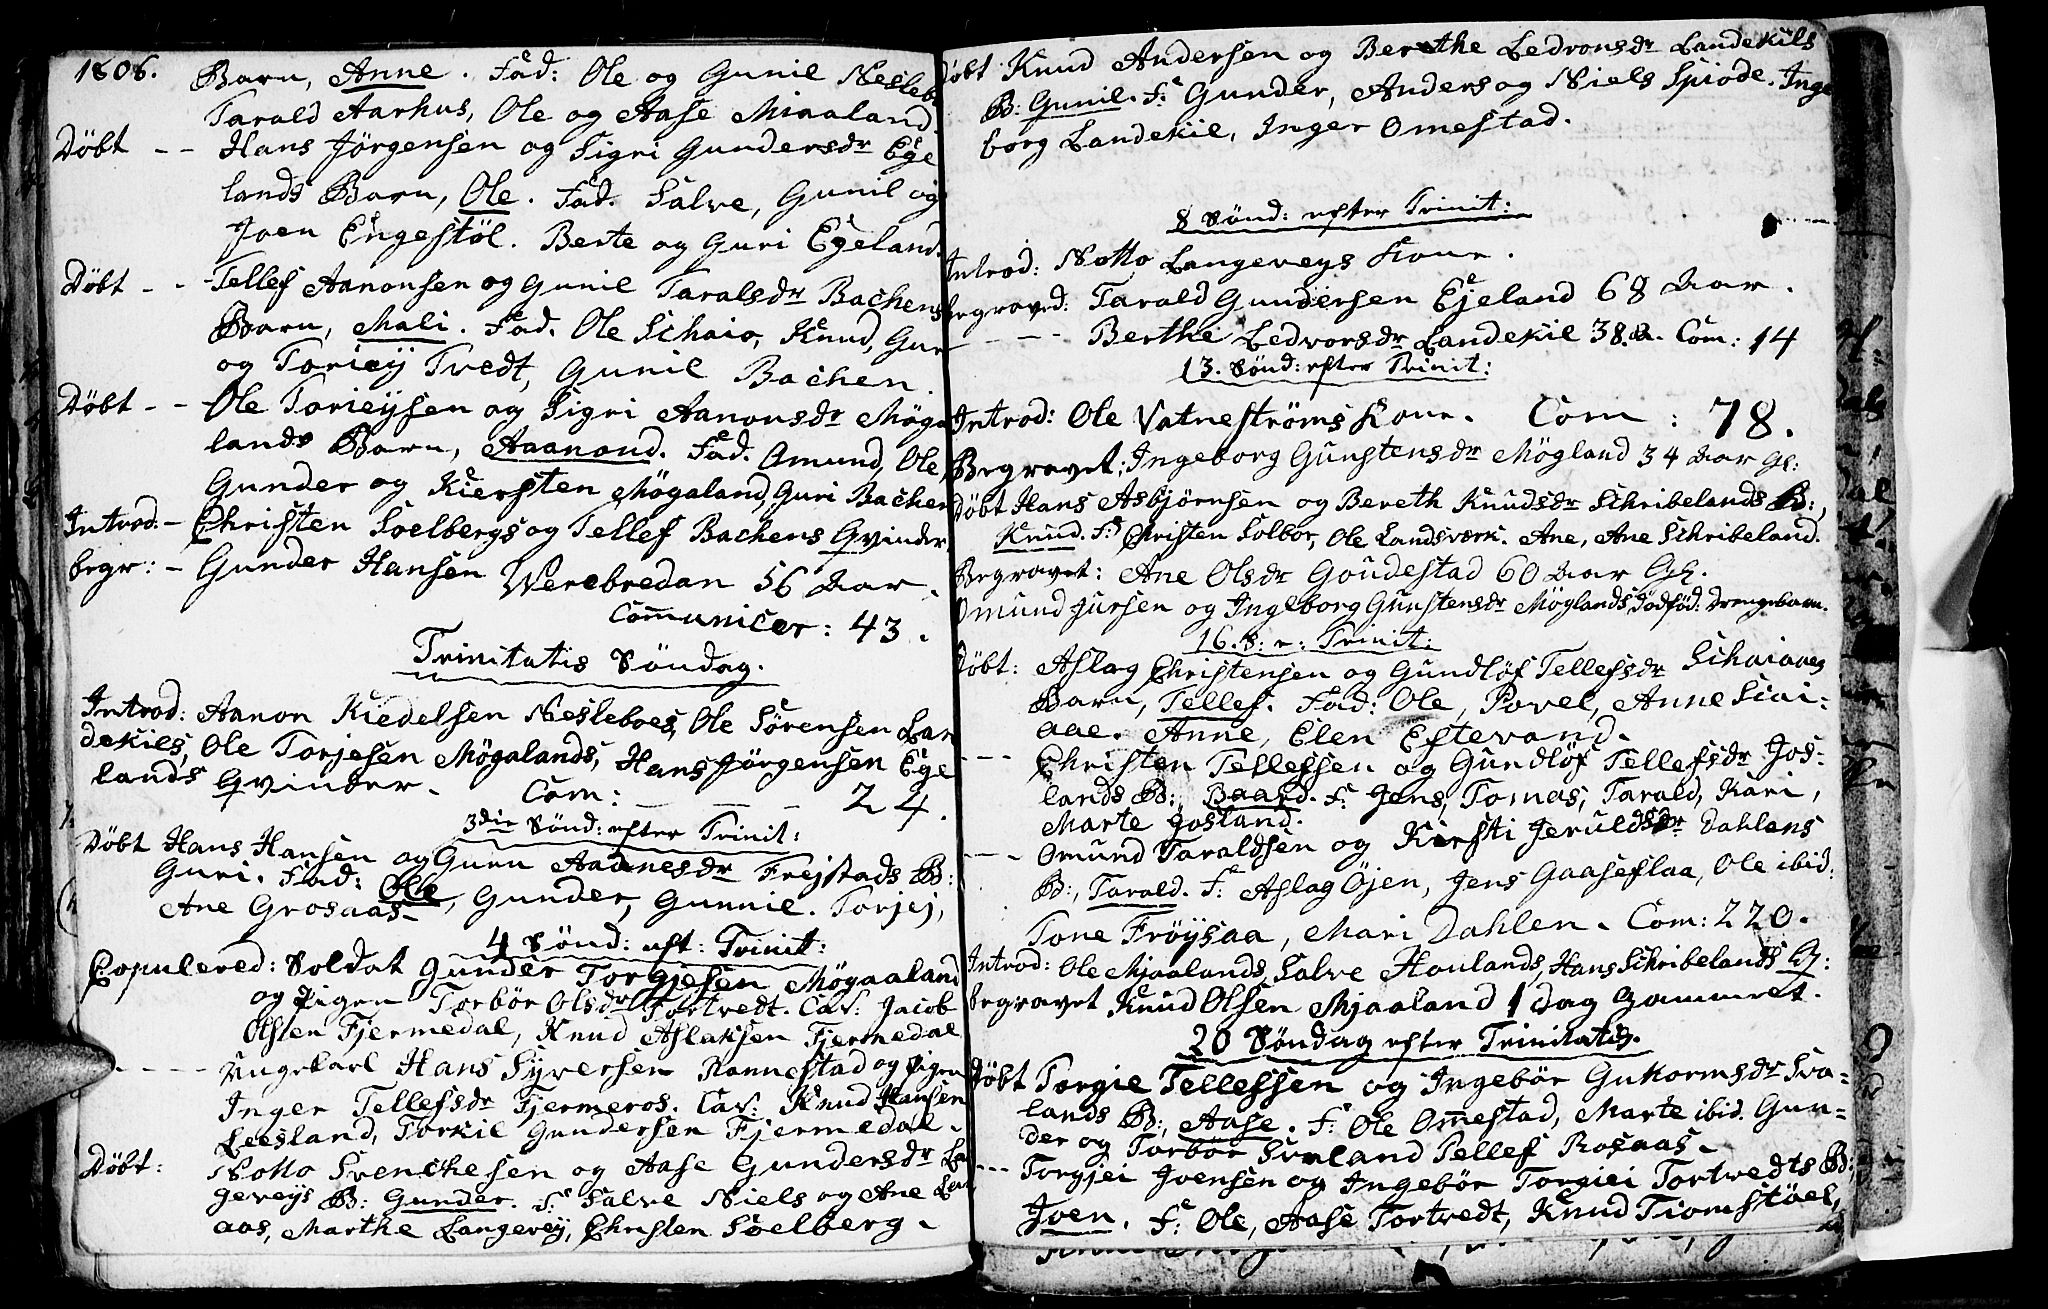 1806.
Barn, Anne. Fad: Ole og Gunil Neslebo
Tarald Aarhus, Ole og Aase Miaaland.
Döbt -- Hans Jörgensen og Sigri Gundersdr Ege
lands Barn, Ole. Fad. Salve, Gunil og
Joen Engestöl. Berte og Guri Egeland.
Döbt -- Tellef Aanonsen og Gunil Taralsdr Bachens
Barn, Mali. Fad. Ole Schaio, Knud, Gur
og Toriey Tvedt, Gunil Bachen.
Döbt -- Ole Torieysen og Sigri Aanonsdr Möga
lands Barn, Aaanond. Fad. Omund, Ole,
Gunder og Kiersten Mögaland, Guri Bachen
Introd: - Christen Soelbergs og Tellef Bachens Qvinder.
begr: - Gunder Hansen Werebredan 56 Aar.
Communicer: 43.
Trinitatis Söndag.
Introd: Aanon Kiedelsen Nesleboes, Ole Sörensen Lan
dekiels, Ole Torjesen Mögalands, Hans Jörgensen Ege
lands Qvinder. Com: - - - 24.
3die Sönd: efter Trinit:
Döbt Hans Hansen og Guru Aadnesdr Frejstads B:
Guri. Fad: Ole, Gunder, Gunnil. Torjej,
Ane Grosaas-
4 Sönd: eft: Trinit:
Copulered: Soldat Gunder Torgjesen Mögaaland
og Pigen Torbör Olsdr Tortvedt. Cav: Jacob
Olsen Fjermedal, Knud Aslaksen Fjermedal
---- Ungekarl Hans Syversen Rannestad og Pigen
Inger Tellefsdr Fjermeros. Cav: Knud Hansen
Leesland, Torkil Gundersen Fjermedal.
Döbt: Notto Svenchesen og Aase Gundersdr Lan
geveys B: Gunder. F: Salve Niels og Ane Lau
aas, Marthe Langevej, Christen Soelberg.
Döbt Knud Andersen og Berethe Ledvonsdr Landekils
B: Gunil. F: Gunder, Anders og Niels Spiode. Inge
borg Landekil, Inger Omestad.
8 Sönd: efter Trinit:
Introd: Notto Langeveys Kone.
Begraved: Tarald Gundersen Ejeland 68 Aar.
---- Berthe Ledvorsdr Landekil 38. A. Com: 14
13. Sönd: efter Trinit:
Introd: Ole Vatneströms Kone. Com: 78.
Begravet: Ingeborg Gunstensdr Mögland 34 Aar Gl:
Döbt Hans Asbjörnsen og Bereth Knudsdr Schribelands B:,
Knud. F: Christen Solbor, Ole Landsværk. Ane, Ane Schribeland.
Begravet: Ane Olsdr Goudestad 60 Aar Gl.
Omund Jursen og Ingeborg Gunstensdr Möglands, Dödföd: Drengebarn.
16. S: e: Trinit:
Döbt: Aslag Christensen og Gundlöf Tellefsdr Schaiaaes
Barn, Tellef. Fad: Ole, Povel, Anne Scai-
aae. Anne, Elen Estevand.
--- Christen Tellefsen og Gundlöf Tellefsdr Jos-
lands B:, Baard. F: Jens, Tomas, Tarald, Kari,
Marte Josland.
--- Omund Taraldsen og Kirsti Jeruldsdr Dahlens
B:, Tarald. F: Aslag Öjen, Jens Gaaseflaa, Ole ibid:
Tone Fröysaa, Mari Dahlen. Com: 220.
Introd: Ole Mjaalands, Salve Houlands, Hans Schribelands Q:
begravet Knud Olsen Mjaaland 1 dag Gammel.
20 Söndag efter Trinitatis.
Döbt Torgie Tellefsen og Ingebör Gukormsdr Sva-
lands B:, Aase. F: Ole Omestad, Marte ibid. Gun-
der og Torbör Svaland Tellef Rosaas.
--- Torgjei Joensen og Ingebör Torgiei Tortvedts B:,
Joen. F: Ole, Aase Tortvedt, Knud Tiomstöel,